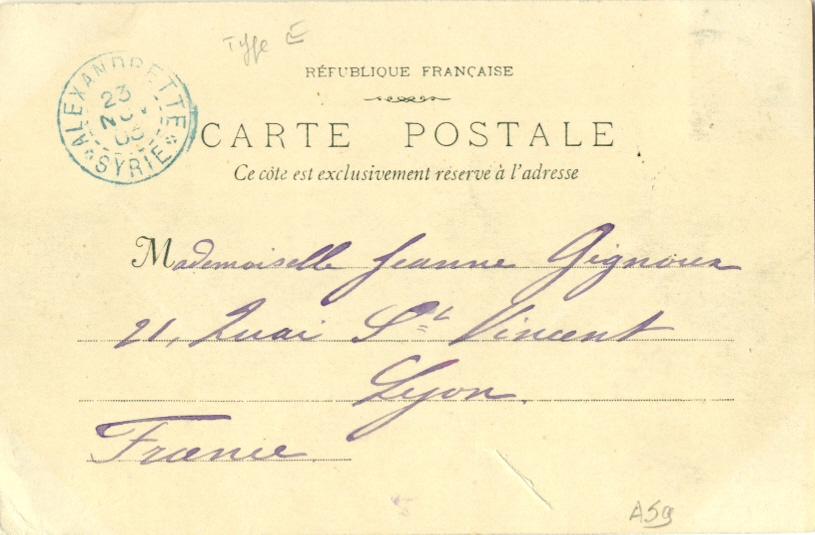 Type E
RÉPUBLIQUE FRANÇAISE
ALEXANDRETTE
23
NOV
03
* SYRIE *
CARTE POSTALE
Ce côté est exclusivement réservé à l'adresse
Mademoiselle Jeanne Gignoux
21, Quai St Vincent
Lyon.
France
A59